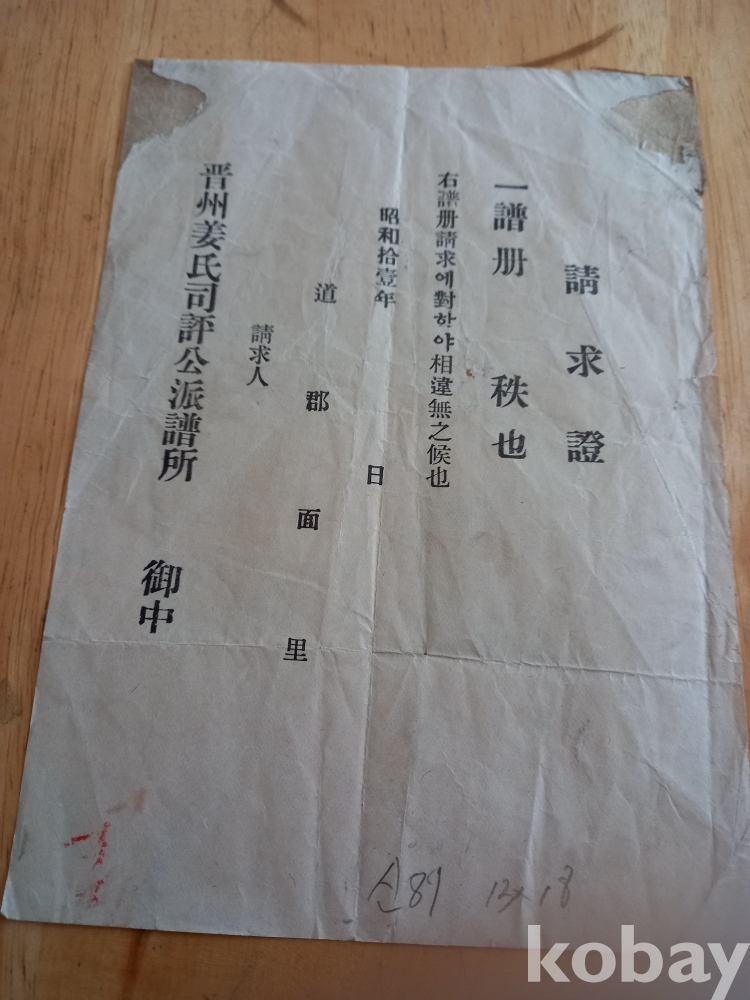 請求證
一譜册 秩也
右譜册請求에對한야相違無之候也
昭和拾壹年 日
道 郡 面 里
請求人
晋州姜氏司評公派譜所 御中
신89 13×18
kobay